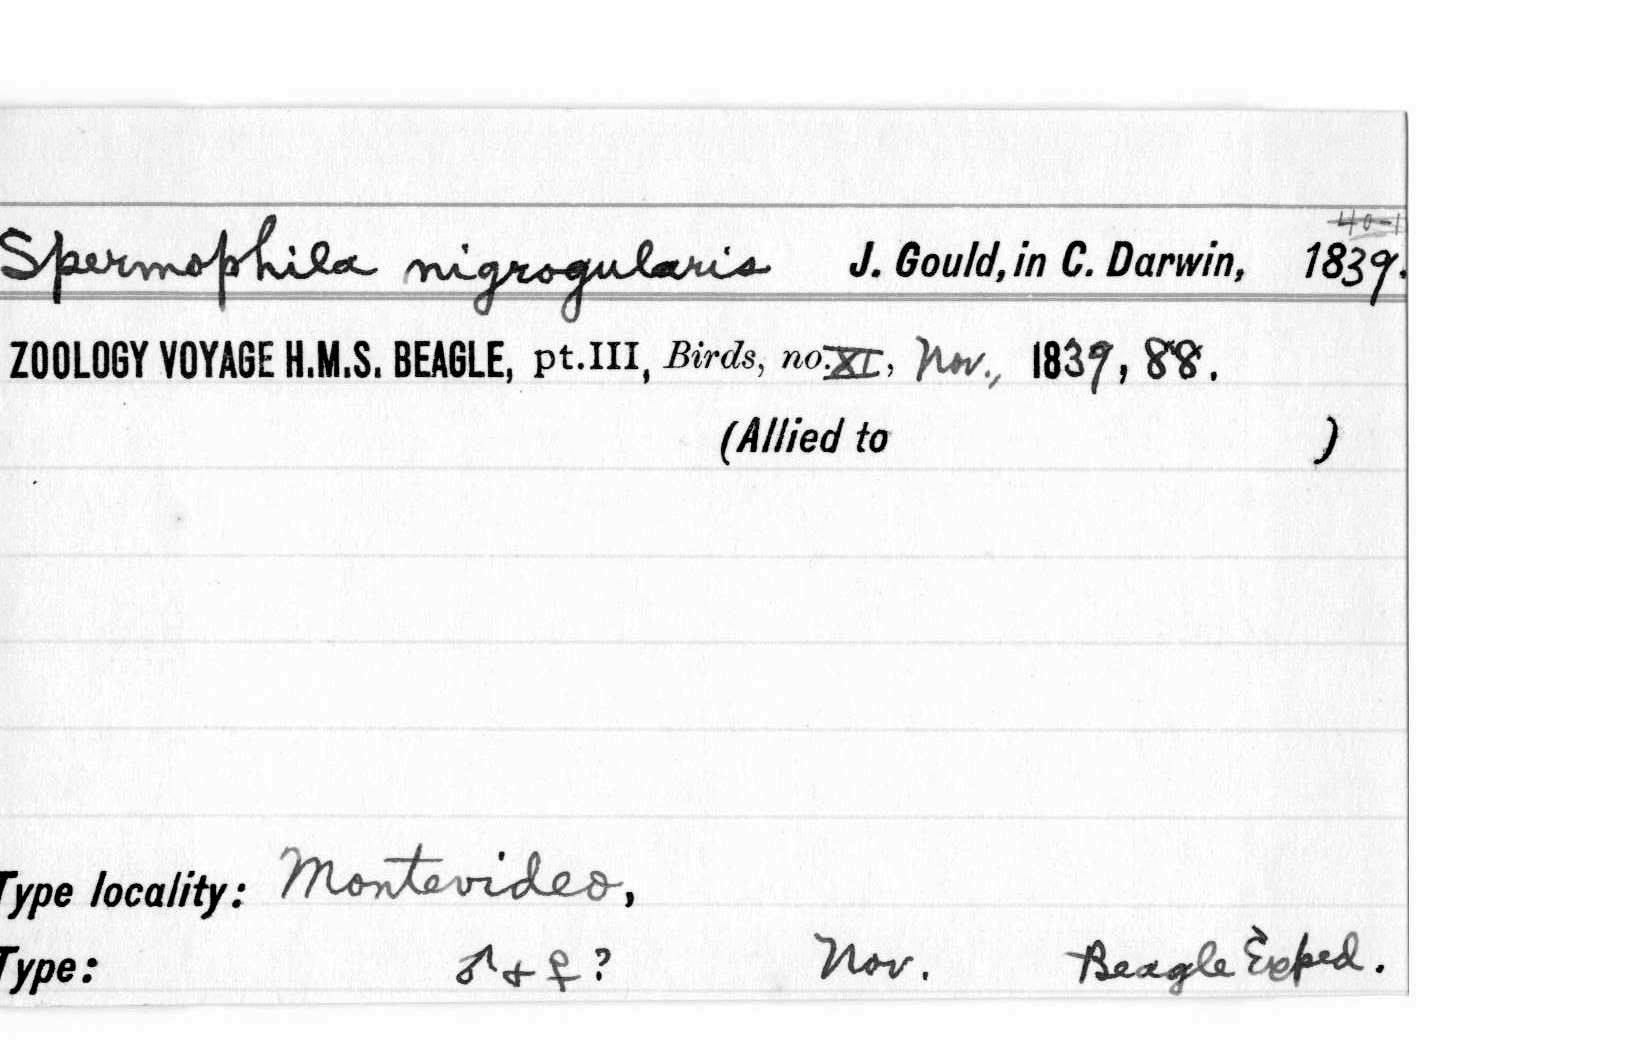 40-1
Spermophila nigrogularis J. Gould, in C. Darwin, 1839.
ZOOLOGY VOYAGE H.M.S. BEAGLE, pt.III, Birds, no. XI, Nov., 1839, 88.
(Allied to )
Type locality: Montevideo,
Type: ♂ + ♀ ? Nov. Beagle Exped.